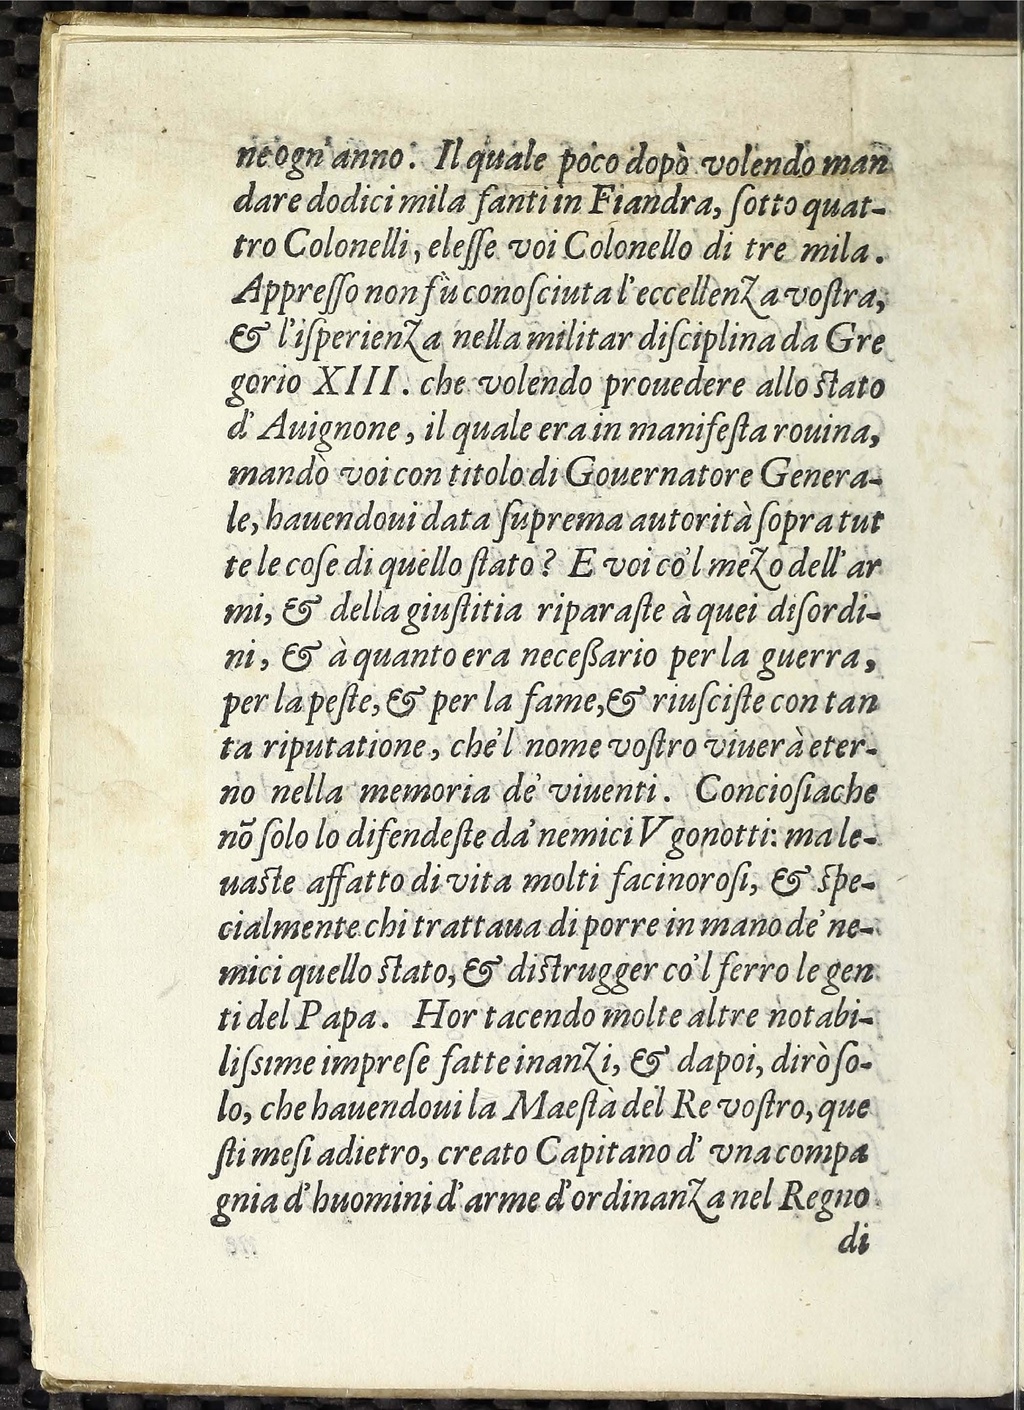 ne ogn'anno. Il quale poco dopò volendo man
dare dodici mila fanti in Fiandra, ſotto quat-
tro Colonelli, eleſſe voi Colonello di tre mila.
Appreſſo non fù conoſciuta l'eccellenza voſtra,
& l'iſperienza nella militar diſciplina da Gre
gorio XIII. che volendo prouedere allo ſtato
d'Auignone, il quale era in manifeſta rouina,
mandò voi con titolo di Gouernatore Genera-
le, hauendoui data ſuprema autorità ſopra tut
te le coſe di quello ſtato? E voi co'l mezo dell'ar
mi, & della giuſtitia riparaſte à quei diſordi-
ni, & à quanto era neceſſario per la guerra,
per la peſte, & per la fame, & riuſciſte con tan
ta riputatione, che'l nome voſtro viuerà eter-
no nella memoria de' viuenti. Concioſiache
nõ ſolo lo difendeſte da' nemici Vgonotti: ma le-
uaſte affatto di vita molti facinoroſi, & ſpe-
cialmente chi trattaua di porre in mano de' ne-
mici quello ſtato, & diſtrugger co'l ferro le gen
ti del Papa. Hor tacendo molte altre notabi-
liſsime impreſe fatte inanzi, & dapoi, dirò ſo-
lo, che hauendoui la Maeſtà del Re voſtro, que
ſti meſi adietro, creato Capitano d'vna compa
gnia d'huomini d'arme d'ordinanza nel Regno
di